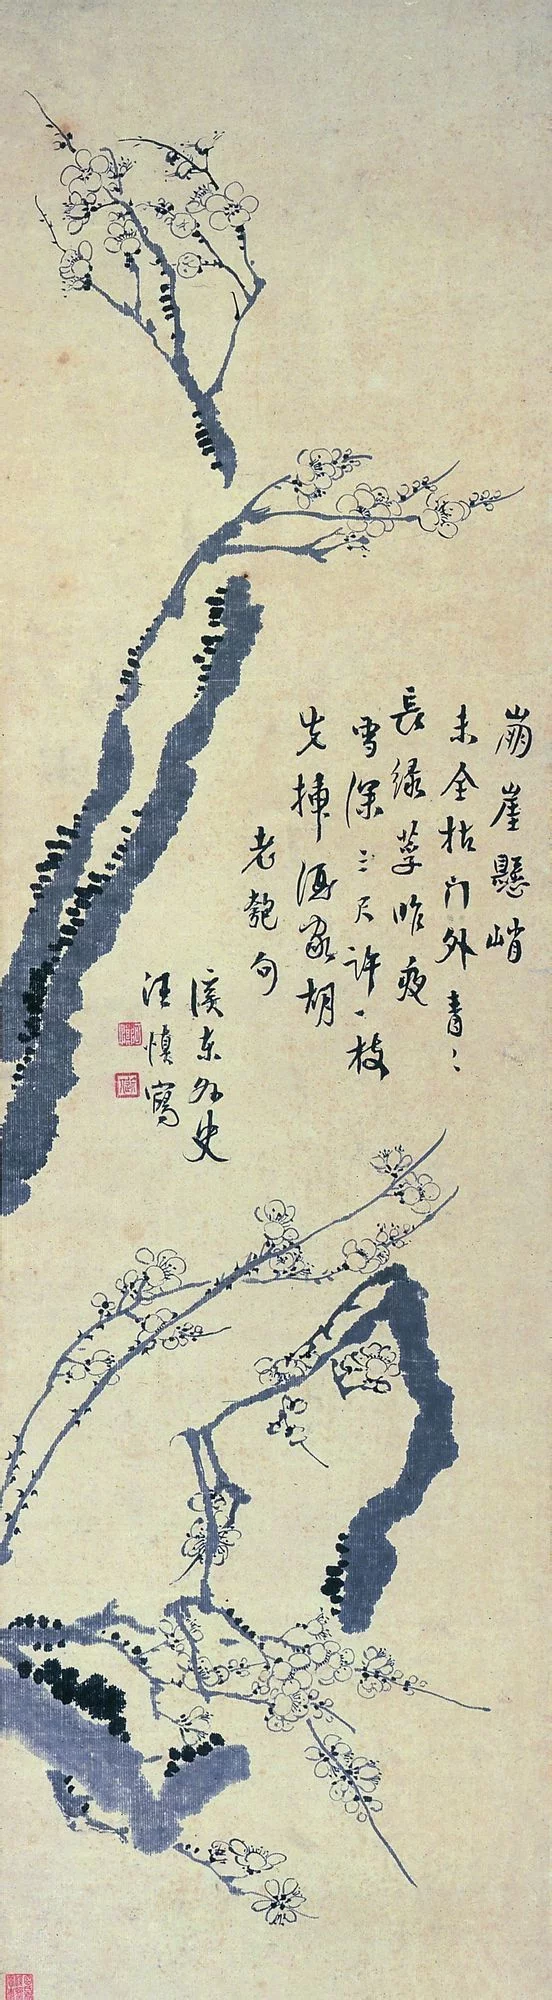 崩崖懸峭
未全枯门外青〻
長緑莩昨夜
雪深三尺許一枝
先挿酒家胡
老匏句
溪東外史
汪慎寫